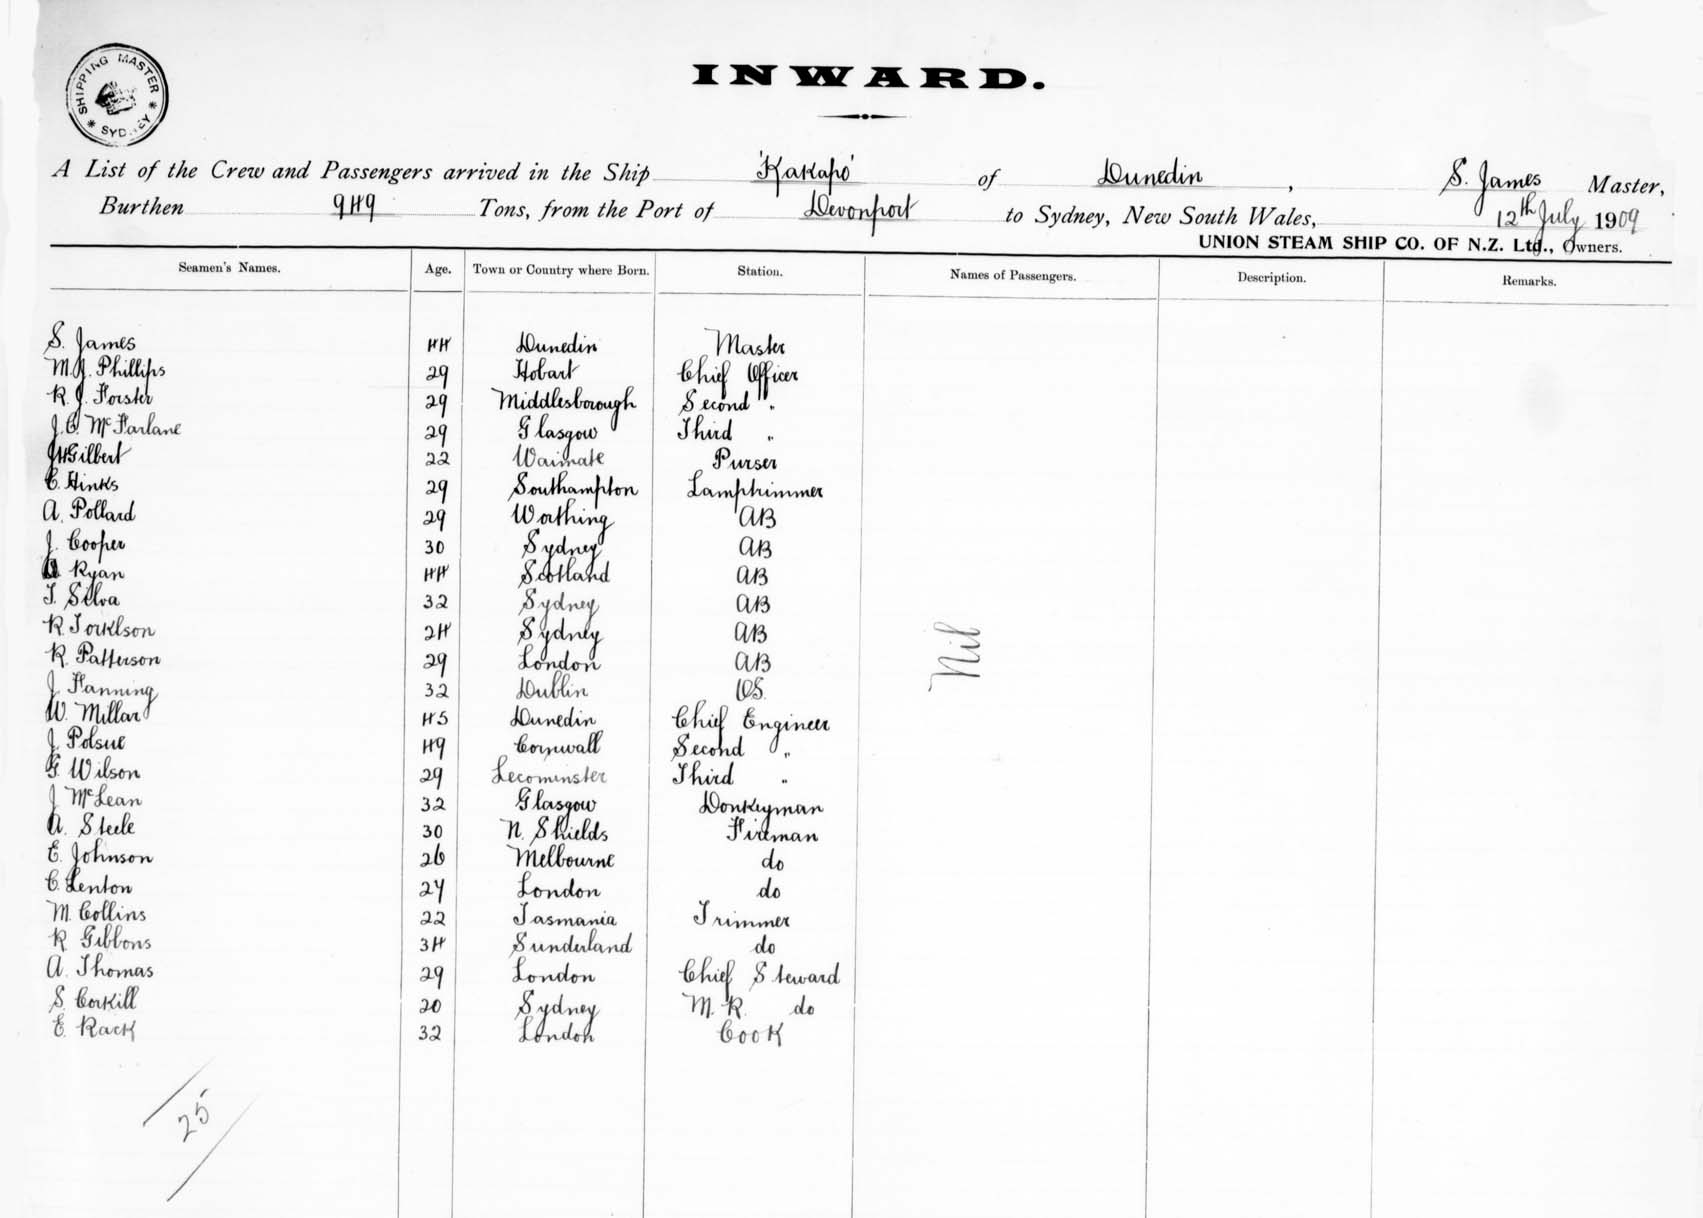 SHIPPING MASTER
* SYDNEY *
INWARD.
A List of the Crew and Passengers arrived in the Ship 'Kakapo' of Dunedin, S. James Master,
Burthen 949 Tons, from the Port of Devonport to Sydney, New South Wales, 12th July 1909
UNION STEAM SHIP CO. OF N.Z. Ltd., Owners.
Seamen's Names. Age. Town or Country where Born. Station. Names of Passengers. Description. Remarks.
S. James 44 Dunedin Master
M.J. Phillips 29 Hobart Chief Officer
R. J. Forster 29 Middlesborough Second "
J.C. McFarlane 29 Glasgow Third "
JH Gilbert 22 Waimate Purser
C. Hinks 29 Southampton Lamptrimmer
A. Pollard 29 Worthing AB
J. Cooper 30 Sydney AB
Ryan 44 Scotland AB
T. Silva 32 Sydney AB
R Torklson 24 Sydney AB
R. Patterson 29 London AB
J Fanning 32 Dublin OS.
W. Millar 45 Dunedin Chief Engineer
J. Polsue 49 Cornwall Second "
G. Wilson 29 Lecominster Third "
J McLean 32 Glasgow Donkeyman
A. Steele 30 N. Shields Fireman
E. Johnson 26 Melbourne do
C. Lenton 24 London do
M. Collins 22 Tasmania Trimmer
R Gibbons 34 Sunderland do
A. Thomas 29 London Chief Steward
S. Corkill 20 Sydney M. R. do
E. Rack 32 London Cook
Nil
25